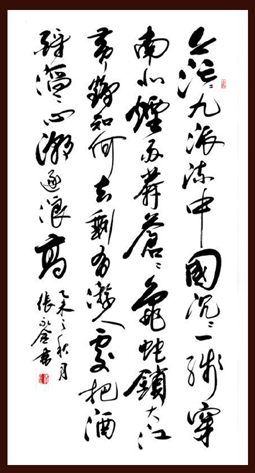 茫〻九派流中國沉〻一线穿
南北煙雨莽蒼〻龜蛇鎖大江
黄鶴知何去剩有游人處把酒
酹滔〻心潮逐浪高
乙未之秋月
張書